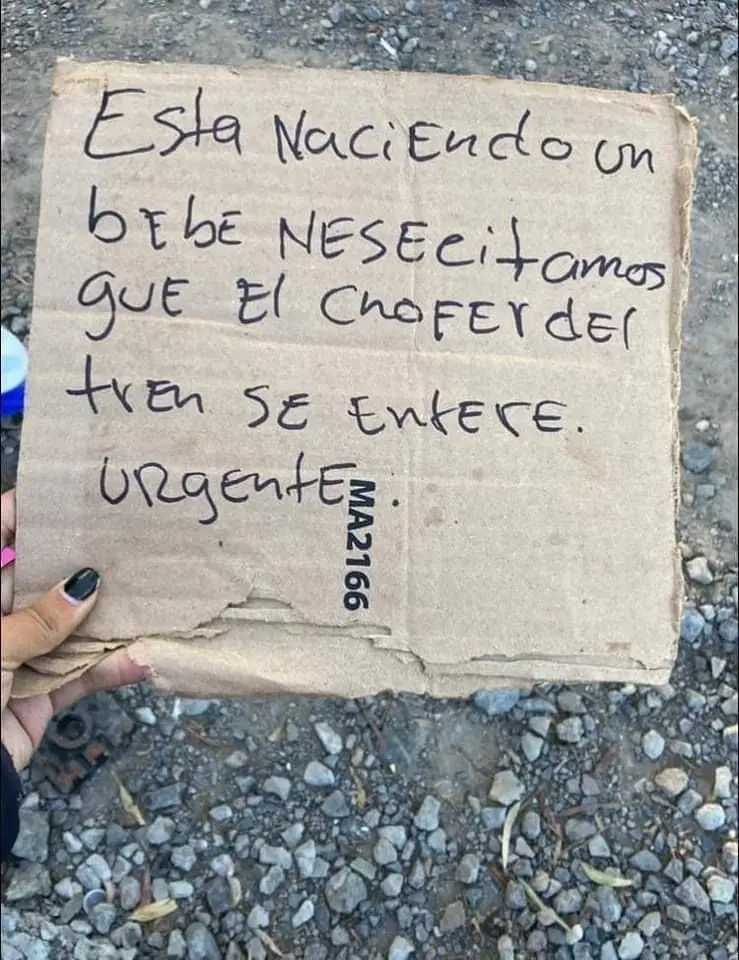 Esta Naciendo un
bebe NESEcitamos
que El choFEr dEl
trEn SE EntErE.
URgentE.
MA2166